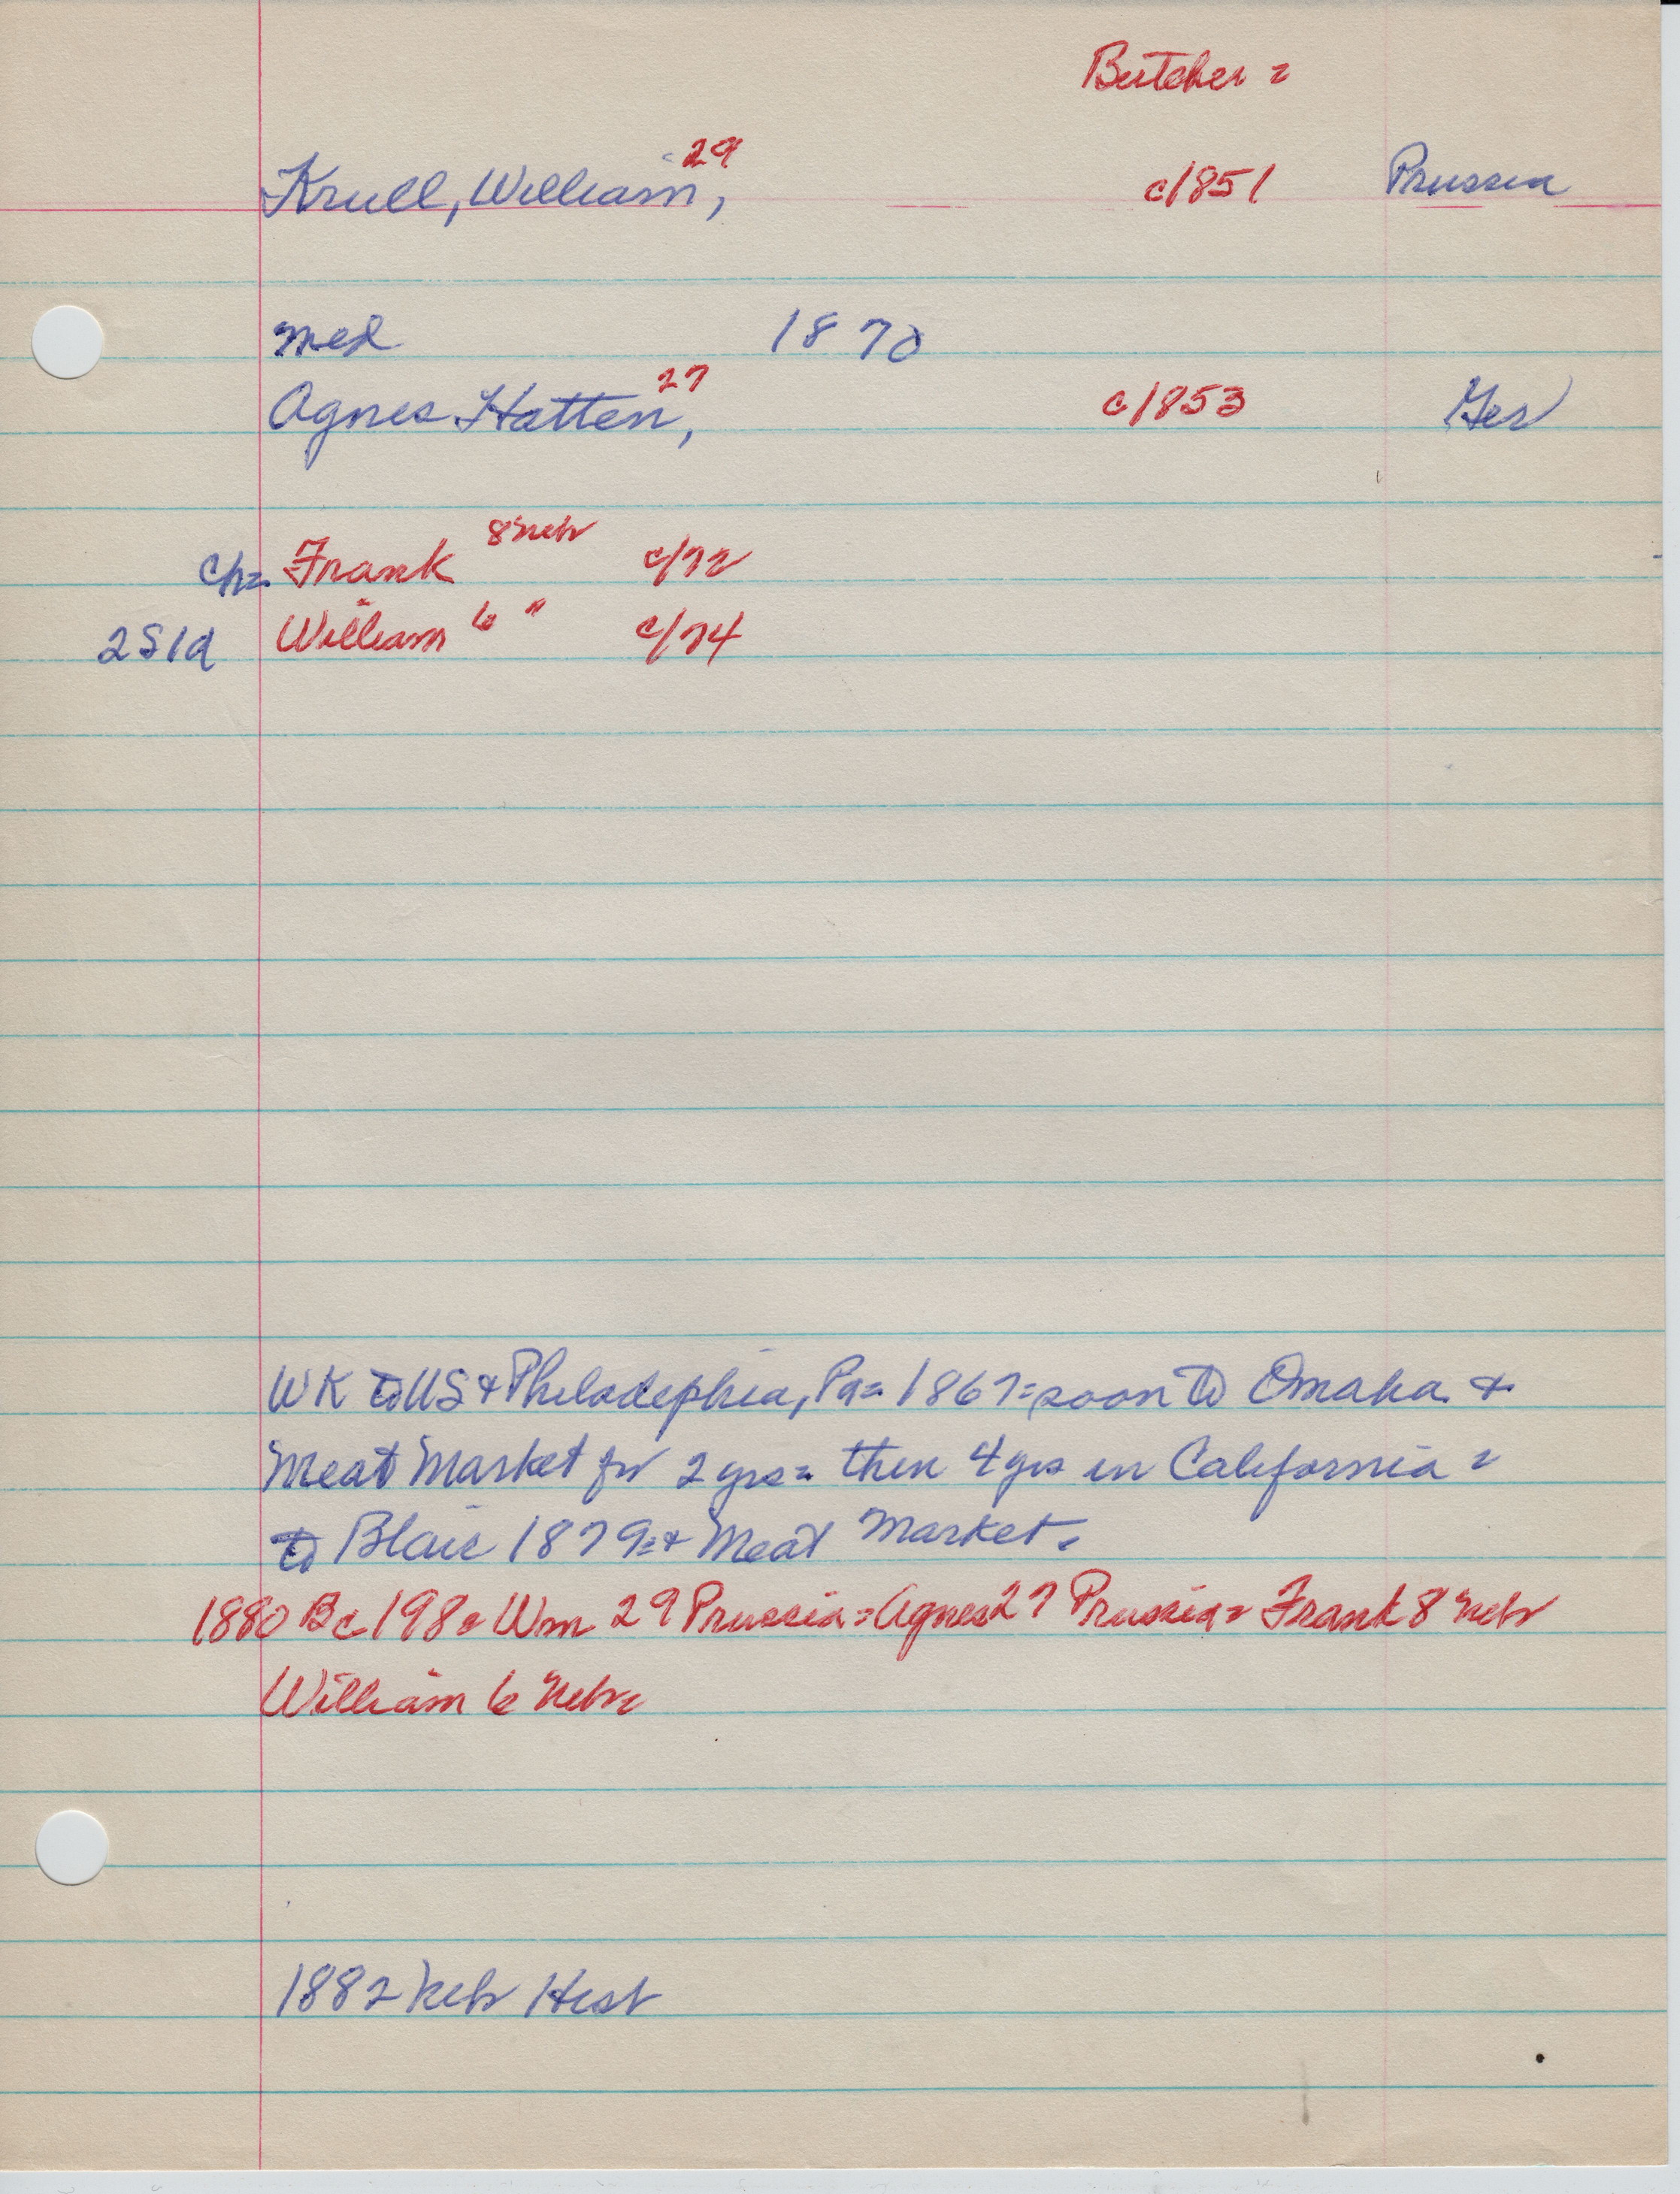 Butcher =
Krull, William, 29 c1851 Prussia
med 1870
Agnes Hatten, 27 c1853 Ger
ch= Frank 8 Neb c/72
2S1d William 6 " c/74
WK to US + Philadephia, Pa= 1867= soon to Omaha +
Meat Market for 2 yrs= then 4 yrs in California =
to Blair 1879=+ Meat Market=
1880 Bc 198= Wm 29 Prussia= Agnes 27 Prussia= Frank 8 Neb
William 6 Neb=
1882 Neb Hist